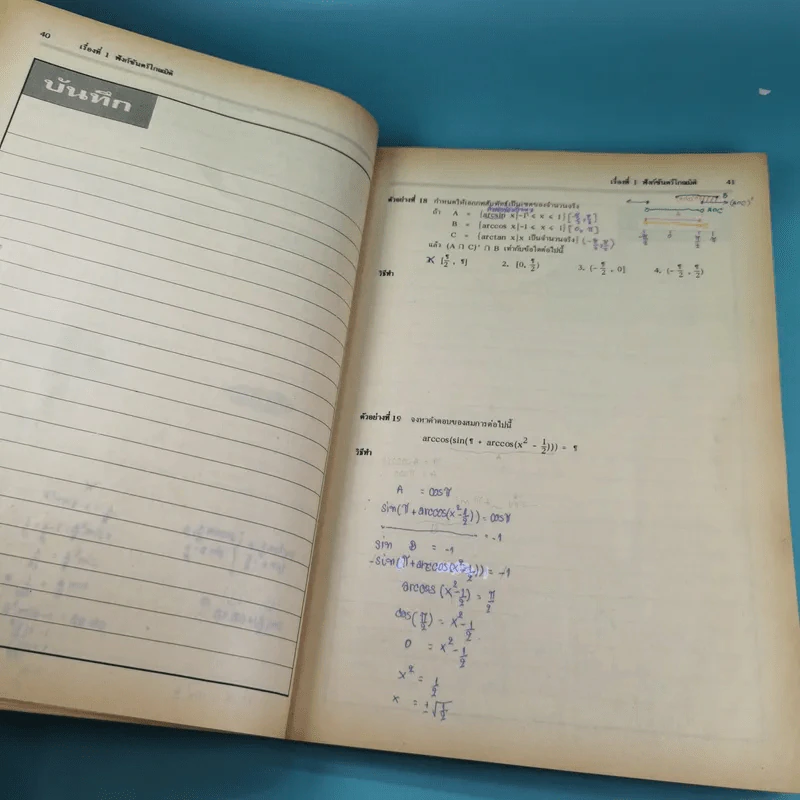 40
เรื่องที่ 1 ฟังก์ชันตรีโกณมิติ
บันทึก
เรื่องที่ 1 ฟังก์ชันตรีโกณมิติ 41
ตัวอย่างที่ 18 กำหนดให้เอกภพสัมพัทธ์เป็นเซตของจำนวนจริง
ถ้า A = {arcsin x|-1 < x < 1} [-π/2, π/2]
B = {arccos x|-1 < x < 1} [0, π]
C = {arctan x|x เป็นจำนวนจริง} (-π/2, π/2)
แล้ว (A ∩ C)' ∩ B เท่ากับข้อใดต่อไปนี้
[π/2, π] 2. [0, π/2) 3. (-π/2, 0] 4. (-π/2, π/2)
วิธีทำ
B
(A∩C)'
A∩C
ตัวอย่างที่ 19 จงหาคำตอบของสมการต่อไปนี้
arccos(sin(π + arccos(x² - 1/2))) = π
วิธีทำ
A = cos π
sin(π + arccos(x² - 1/2)) = cos π
= -1
sin B = -1
-sin(π + arccos(x² - 1/2)) = -1
arccos(x² - 1/2) = π/2
cos(π/2) = x² - 1/2
0 = x² - 1/2
x² = 1/2
x = ±√1/2